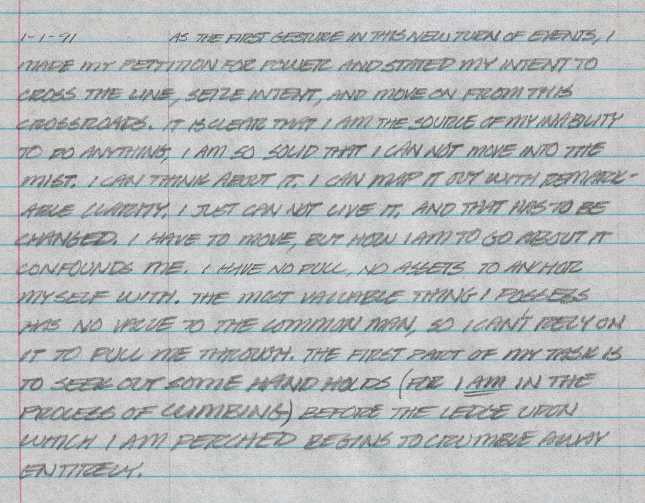 1-1-91 AS THE FIRST GESTURE IN THIS NEW TURN OF EVENTS, I
MADE MY PETITION FOR POWER AND STATED MY INTENT TO
CROSS THE LINE, SEIZE INTENT, AND MOVE ON FROM THIS
CROSSROADS. IT IS CLEAR THAT I AM THE SOURCE OF MY INABILITY
TO DO ANYTHING, I AM SO SOLID THAT I CAN NOT MOVE INTO THE
MIST. I CAN THINK ABOUT IT. I CAN MAP IT OUT WITH REMARK-
ABLE CLARITY. I JUST CAN NOT LIVE IT. AND THAT HAS TO BE
CHANGED. I HAVE TO MOVE, BUT HOW I AM TO GO ABOUT IT
CONFOUNDS ME. I HAVE NO PULL, NO ASSETS TO ANCHOR
MYSELF WITH. THE MOST VALUABLE THING I POSSESS
HAS NO VALUE TO THE COMMON MAN, SO I CAN'T RELY ON
IT TO PULL ME THROUGH. THE FIRST PART OF MY TASK IS
TO SEEK OUT SOME HAND HOLDS (FOR I AM IN THE
PROCESS OF CLIMBING) BEFORE THE LEDGE UPON
WHICH I AM PERCHED BEGINS TO CRUMBLE AWAY
ENTIRELY.